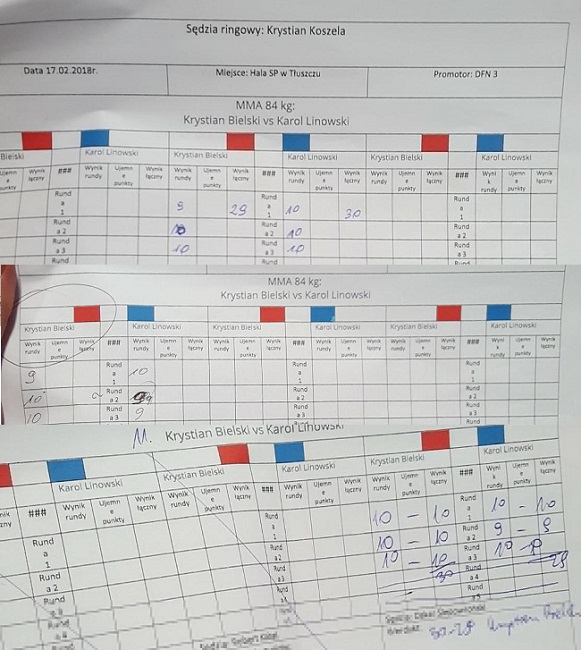 Sędzia ringowy: Krystian Koszela
Data 17.02.2018r. Miejsce: Hala SP w Tłuszczu Promotor: DFN 3
MMA 84 kg:
Krystian Bielski vs Karol Linowski
Bielski Karol Linowski Krystian Bielski Karol Linowski Krystian Bielski Karol Linowski
Ujemne punkty Wynik łączny ### Wynik rundy Ujemne punkty Wynik łączny Wynik rundy Ujemne punkty Wynik łączny ### Wynik rundy Ujemne punkty Wynik łączny Wynik rundy Ujemne punkty Wynik łączny ### Wynik rundy Ujemne punkty Wynik łączny
Runda 1 9 29 Runda 1 10 30 Runda 1
Runda 2 10 Runda 2 10 Runda 2
Runda 3 10 Runda 3 10 Runda 3
Rund Rund Rund
MMA 84 kg:
Krystian Bielski vs Karol Linowski
Krystian Bielski Karol Linowski Krystian Bielski Karol Linowski Krystian Bielski Karol Linowski
Wynik rundy Ujemne punkty Wynik łączny ### Wynik rundy Ujemne punkty Wynik łączny Wynik rundy Ujemne punkty Wynik łączny ### Wynik rundy Ujemne punkty Wynik łączny Wynik rundy Ujemne punkty Wynik łączny ### Wynik rundy Ujemne punkty Wynik łączny
9 Runda 1 10 Runda 1 Runda 1
10 Runda 2 9 Runda 2 Runda 2
10 Runda 3 9 Runda 3 Runda 3
Krystian Bielski vs Karol Linowski
Karol Linowski Krystian Bielski Karol Linowski Krystian Bielski Karol Linowski
### Wynik rundy Ujemne punkty Wynik łączny Wynik rundy Ujemne punkty Wynik łączny ### Wynik rundy Ujemne punkty Wynik łączny Wynik rundy Ujemne punkty Wynik łączny ### Wynik rundy Ujemne punkty Wynik łączny
Runda 1 Runda 1 10 - 10 Runda 1 10 - 10
Runda 2 Runda 2 10 - 10 Runda 2 9 - 9
Rund Runda 3 10 - 10 Runda 3 10 -
30 Runda 4 29